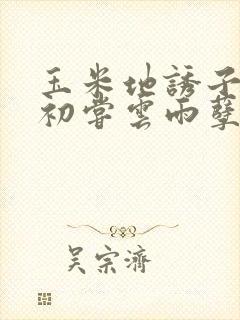 玉米地誘子
初嘗雲雨孽
吳宗濟